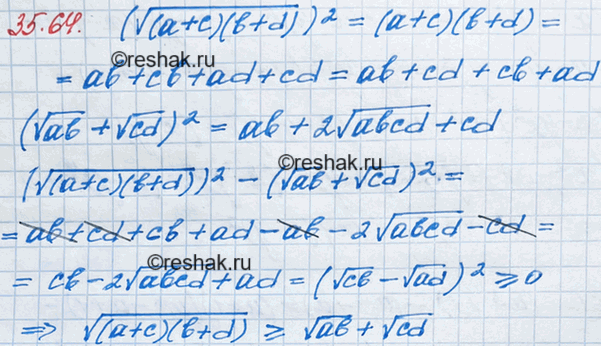 35.64. (√((a+c)(b+d)))² = (a+c)(b+d) =
©reshak.ru
= ab + cb + ad + cd = ab + cd + cb + ad
(√ab + √cd)² = ab + 2√abcd + cd
©reshak.ru
(√((a+c)(b+d)))² - (√ab + √cd)² =
= ab + cd + cb + ad - ab - 2√abcd - cd =
©reshak.ru
= cb - 2√abcd + ad = (√cb - √ad)² ≥ 0
⇒ √((a+c)(b+d)) ≥ √ab + √cd